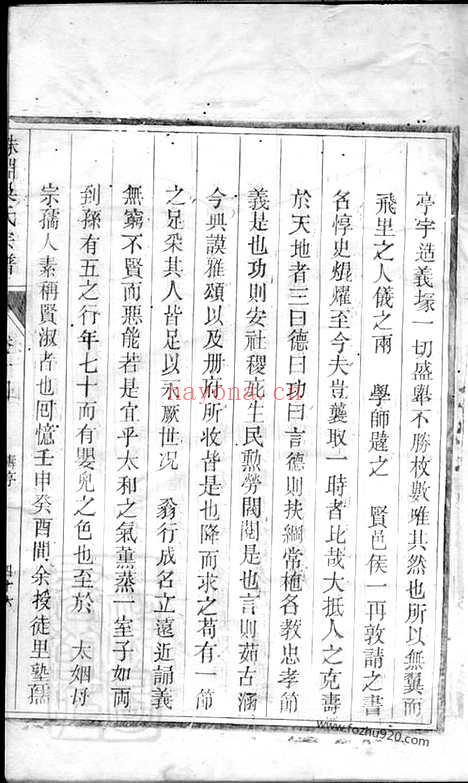 亭宇造義塚一切盛舉不勝枚數唯其然也所以無翼而
飛里之人儀之兩 學師韙之 賢邑侯一再敦請之書
名惇史焜燿至今夫豈襲取一時者比哉大抵人之克壽
於天地者三曰德曰功曰言德則扶綱常植名教忠孝節
義是也功則安社稷庇生民勲勞閥閱是也言則茹古涵
今典謨雅頌以及册府所收皆是也降而求之苟有一節
之足采其人皆足以示厥世况 翁行成名立遠近誦義
無窮不賢而惡能若是宜乎太和之氣薰蒸一室子如兩
到孫有五之行年七十而有嬰兒之色也至於 太姻母
宗孺人素稱賢淑者也回憶壬申癸酉間余授徒里塾孺
吳氏宗譜
壽序
nayona.cn
www.fozhu920.com